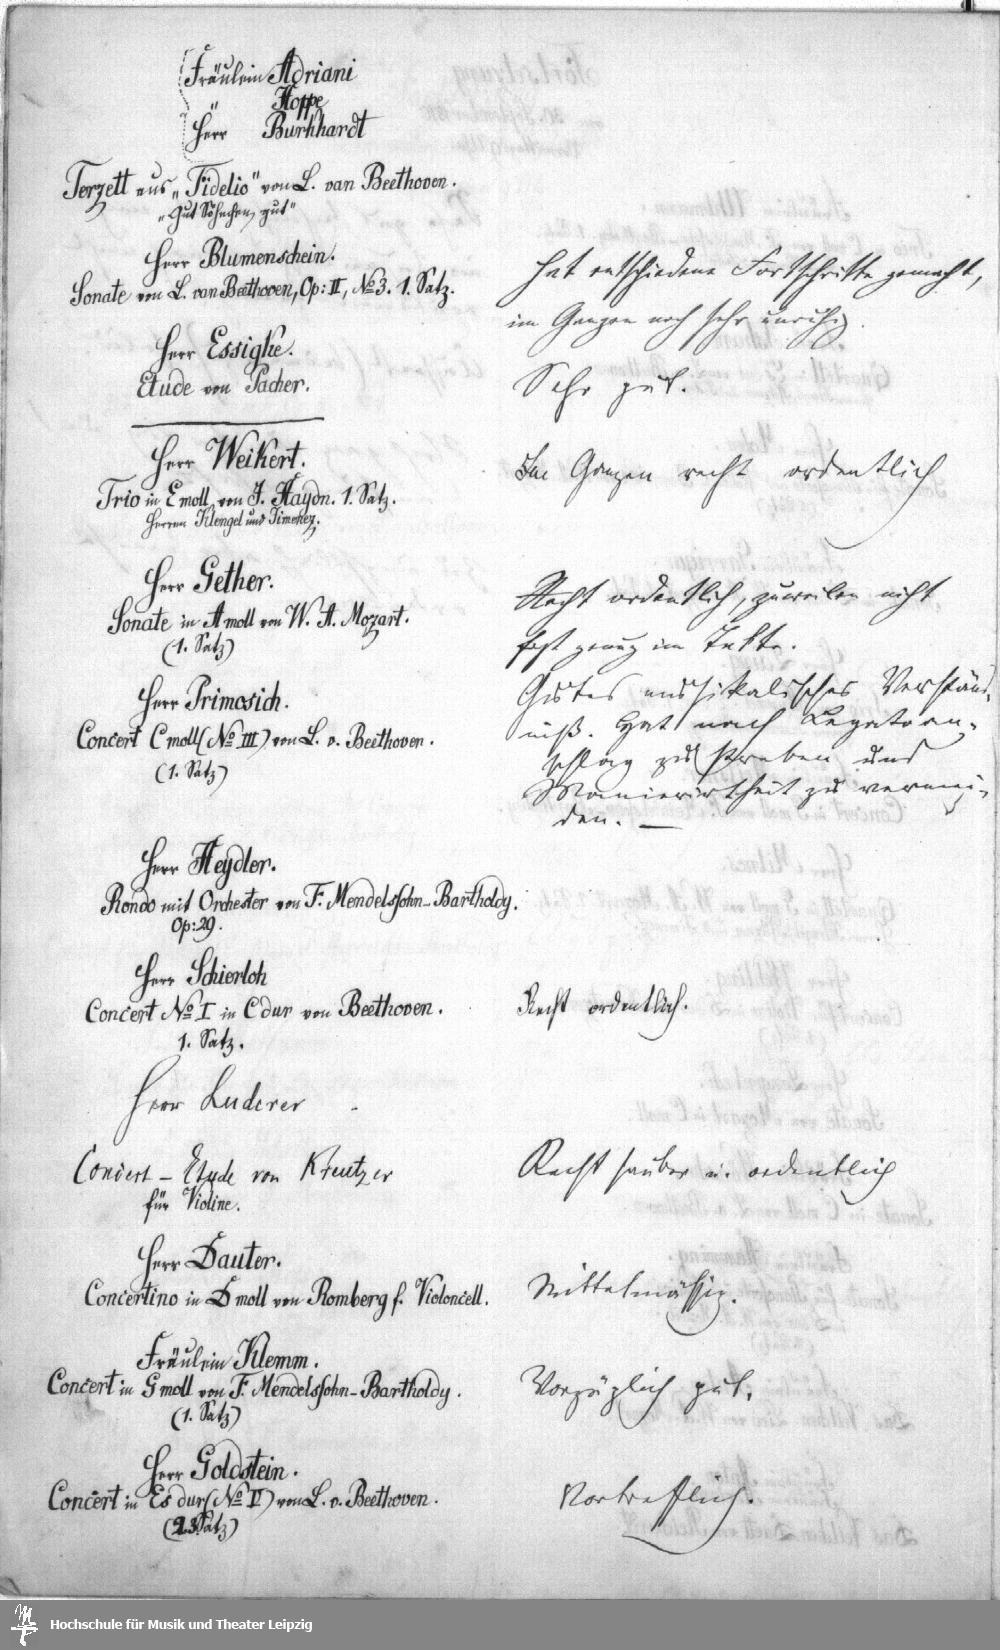 Fräulein Adriani
" Hoppe
Herr Burkhardt
Terzett aus „Fidelio" von L. van Beethoven.
„Gut Söhnchen, gut"
Herr Blumenschein.
Sonate von L. van Beethoven, Op: II, No 3. 1. Satz.
hat entschiedene Fortschritte gemacht,
im Ganzen noch sehr unruhig.
Herr Essigke.
Etude von Pacher.
Sehr gut.
Herr Weikert.
Trio in E moll von J. Haydn. 1. Satz.
Herren Klengel und Jimenez.
Im Ganzen recht ordentlich
Herr Gether.
Sonate in A moll von W. A. Mozart.
(1. Satz)
Recht ordentlich, zuweilen nicht
fest genug im Takte.
Herr Primosich.
Concert C moll (No III) von L. v. Beethoven.
(1. Satz)
Gutes musikalisches Verständ-
niß. Hat nach Legatoan-
schlag zu streben und
Manierirtheit zu vermei-
den. —
Herr Heydler.
Rondo mit Orchester von F. Mendelssohn-Bartholdy.
Op: 29.
Herr Schierloh
Concert No I in C dur von Beethoven.
1. Satz.
Recht ordentlich.
Herr Luderer
Concert – Etude von Kreutzer
für Violine.
Recht sauber u. ordentlich
Herr Dauter.
Concertino in D moll von Romberg f. Violoncell.
Mittelmässig.
Fräulein Klemm.
Concert in G moll von F. Mendelssohn-Bartholdy.
(1. Satz)
Vorzüglich gut.
Herr Goldstein.
Concert in Es dur (No V) von L. v. Beethoven.
(2. 3. Satz)
Vortrefflich.
Hochschule für Musik und Theater Leipzig